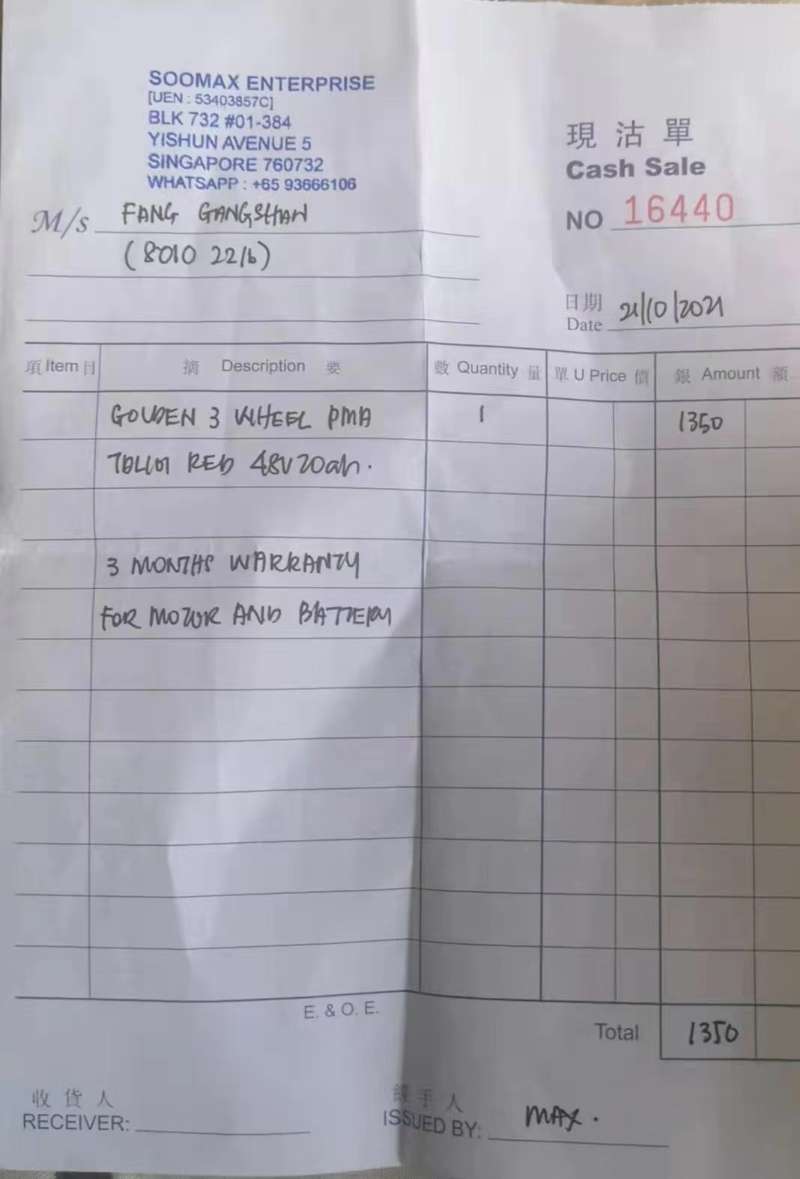 SOOMAX ENTERPRISE
[UEN : 53403857C]
BLK 732 #01-384
YISHUN AVENUE 5
SINGAPORE 760732
WHATSAPP : +65 93666106
現沽單
Cash Sale
NO 16440
M/s FANG GANGSHAN
(8010 2216)
日期
Date 21/10/2021
項 Item 目 摘 Description 要 數 Quantity 量 單 U Price 價 銀 Amount 額
GOLDEN 3 WHEEL PMA 1 1350
RED 48V20ah.
3 MONTHS WARRANTY
FOR MOTOR AND BATTERY
E. & O. E.
Total 1350
收貨人
RECEIVER:
經手人
ISSUED BY: MAX.